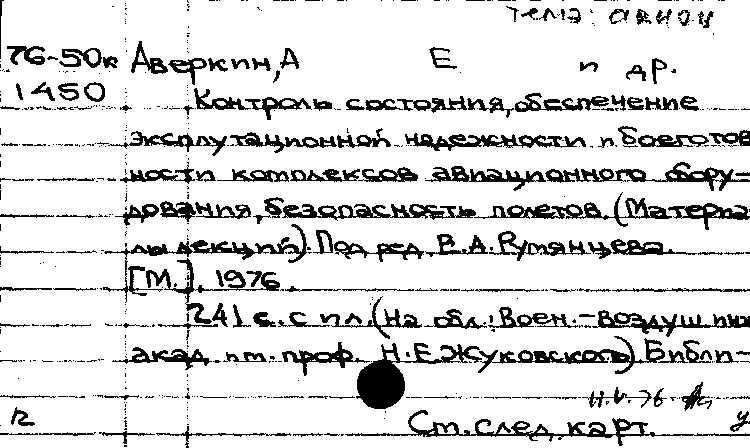 тема:
76-50к Аверкин, А Е и др.
1450 Контроль состояния, обеспечение
эксплутационной надежности и боеготов
ности комплексов авиационного обору-
дования, безопасность полетов. (Материа
лы лекций) Под ред. В.А. Румянцева.
[М.], 1976.
241 с. с ил. (На обл.: Воен.-воздуш. инж
акад. им. проф. Н.Е.Жуковского) Библи-
См. след. карт. у